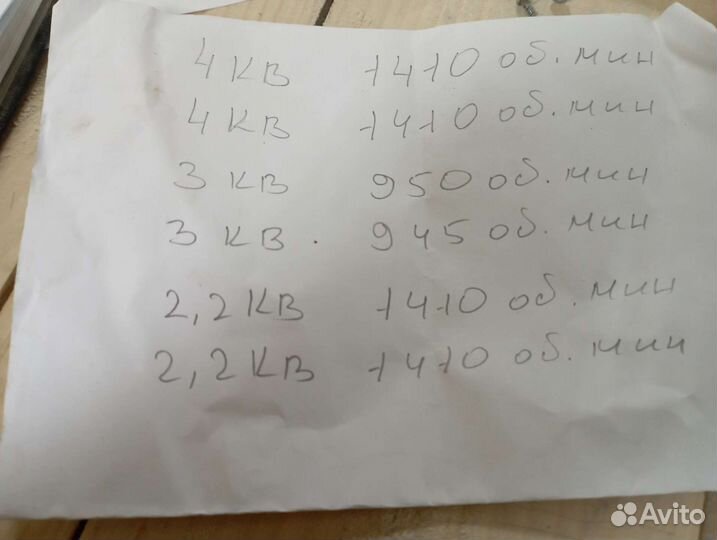 4 кв 1410 об. мин
4 кв 1410 об. мин
3 кв 950 об. мин
3 кв. 945 об. мин
2,2 кв 1410 об. мин
2,2 кв 1410 об. мин
Avito